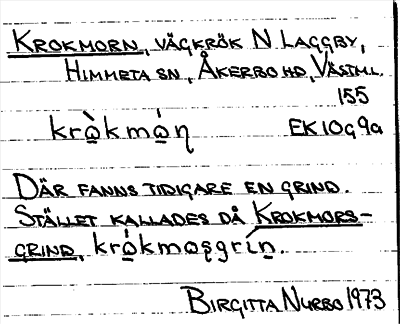 KROKMORN, VÄGKRÖK N LAGGBY,
HIMMETA SN, ÅKERBO HD, VÄSTML.
155
krò̲kmó̲ꞑ EK 10g9a
DÄR FANNS TIDIGARE EN GRIND.
STÄLLET KALLADES DÅ KROKMORS-
GRIND, kró̲kmo̲ʂgrín̲.
BIRGITTA NURBO 1973